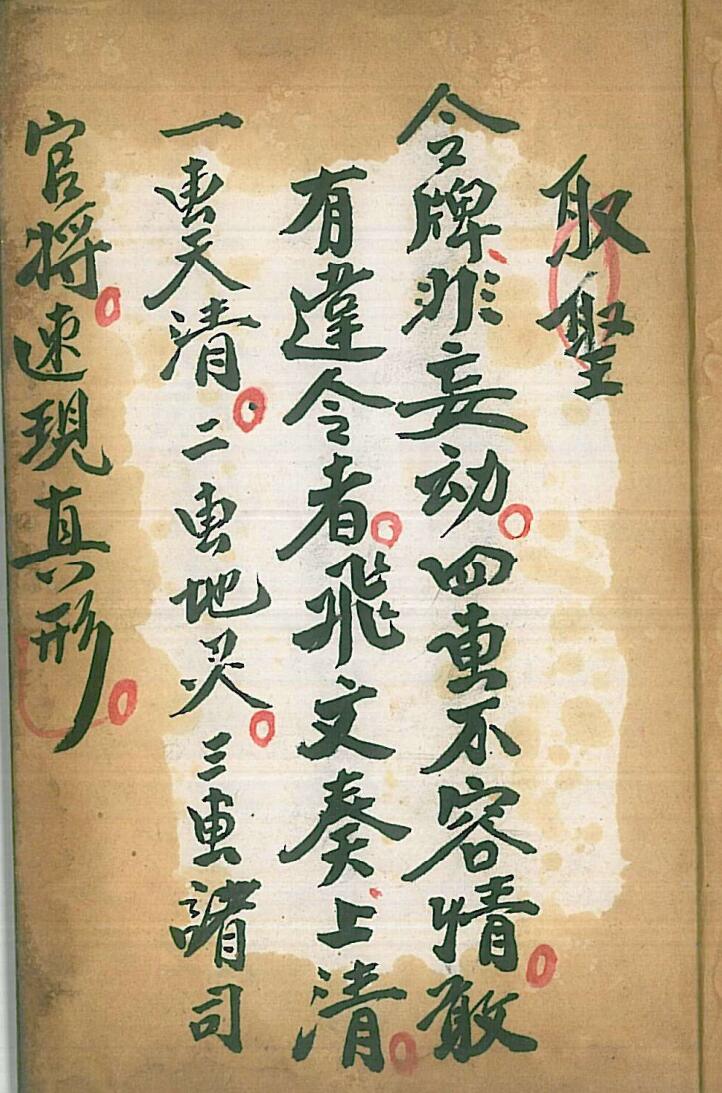 取聖
令牌非妄动四重不容情敢
有違令者飛文奏上清
一叀天清二叀地灵三叀諸司
官将速現真形